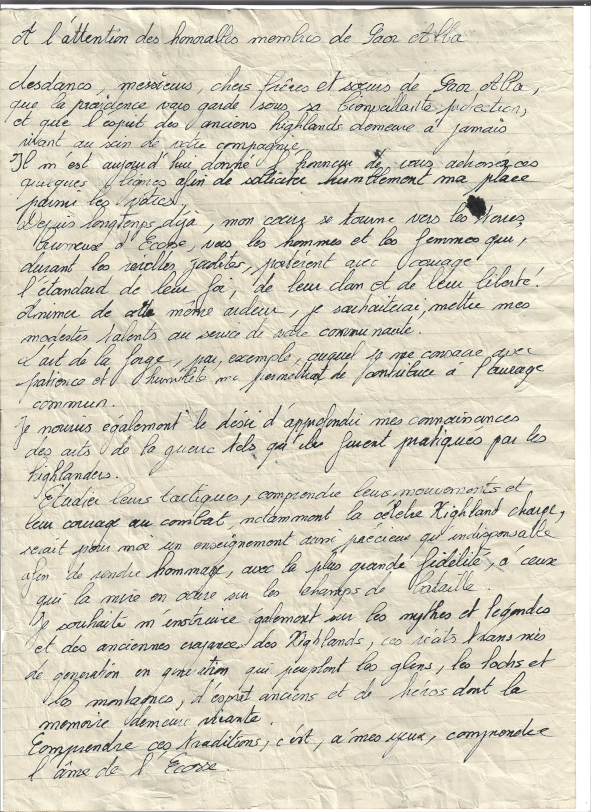 A l'attention des honorables membres de Gaor Alba
Mesdames, messieurs, chers frères et sœurs de Gaor Alba,
que la providence vous garde sous sa bienveillante protection,
et que l'esprit des anciens highlands demeure à jamais
vivant au sein de votre compagnie.
Il m'est aujourd'hui donné l'honneur de vous adresser ces
quelques lignes afin de solliciter humblement ma place
parmi les vôtres.
Depuis longtemps déjà, mon cœur se tourne vers les terres
brumeuse d'Ecosse, vers les hommes et les femmes qui,
durant les révoltes jacobites, portèrent avec courage
l'étandard de leur foi, de leur clan et de leur liberté.
Animer de cette même ardeur, je souhaiterai, mettre mes
modestes talents au service de votre communauté.
L'art de la forge, par exemple, auquel je me consacre avec
patience et humilité me permettrait de contribuer à l'ouvrage
commun.
Je nourris également le désir d'approfondir mes connaissances
des arts de la guerre tels qu'ils furent pratiqués par les
highlanders.
Etudier leurs tactiques, comprendre leurs mouvements et
leur courage au combat, notamment la célèbre Highland charge,
serait pour moi un enseignement aussi précieux qu'indispensable
afin de rendre hommage, avec la plus grande fidélité, à ceux
qui la mire en œuvre sur les champs de bataille.
Je souhaite m'instruire également sur les mythes et légendes
et des anciennes croyances des Highlands, ces récits transmis
de generation en generation qui peuplent les glens, les lochs et
les montagnes, d'esprit anciens et de héros dont la
memoire demeure vivante.
Comprendre ces traditions, c'est, à mes yeux, comprendre
l'âme de l'Ecosse.